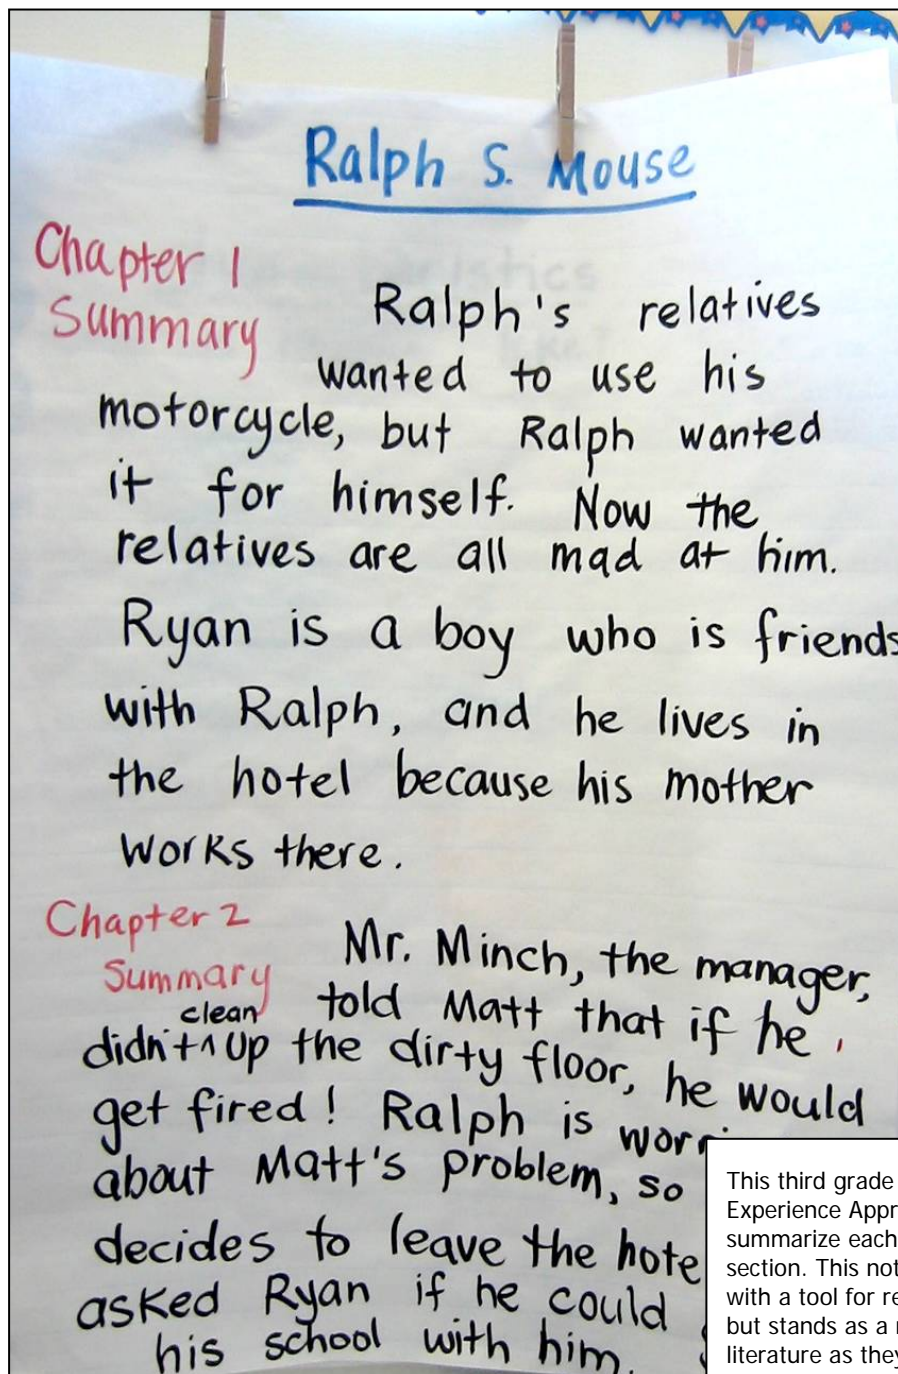 Ralph S. Mouse
Chapter 1
Summary
Ralph's relatives
wanted to use his
motorcycle, but Ralph wanted
it for himself. Now the
relatives are all mad at him.
Ryan is a boy who is friends
with Ralph, and he lives in
the hotel because his mother
works there.
Chapter 2
Summary
Mr. Minch, the manager,
told Matt that if he
didn't ^ clean up the dirty floor, he would
get fired! Ralph is
about Matt's problem, so
decides to leave the hote
asked Ryan if he could
his school with him.
This third grade
Experience Appr
summarize each
section. This not
with a tool for re
but stands as a
literature as they